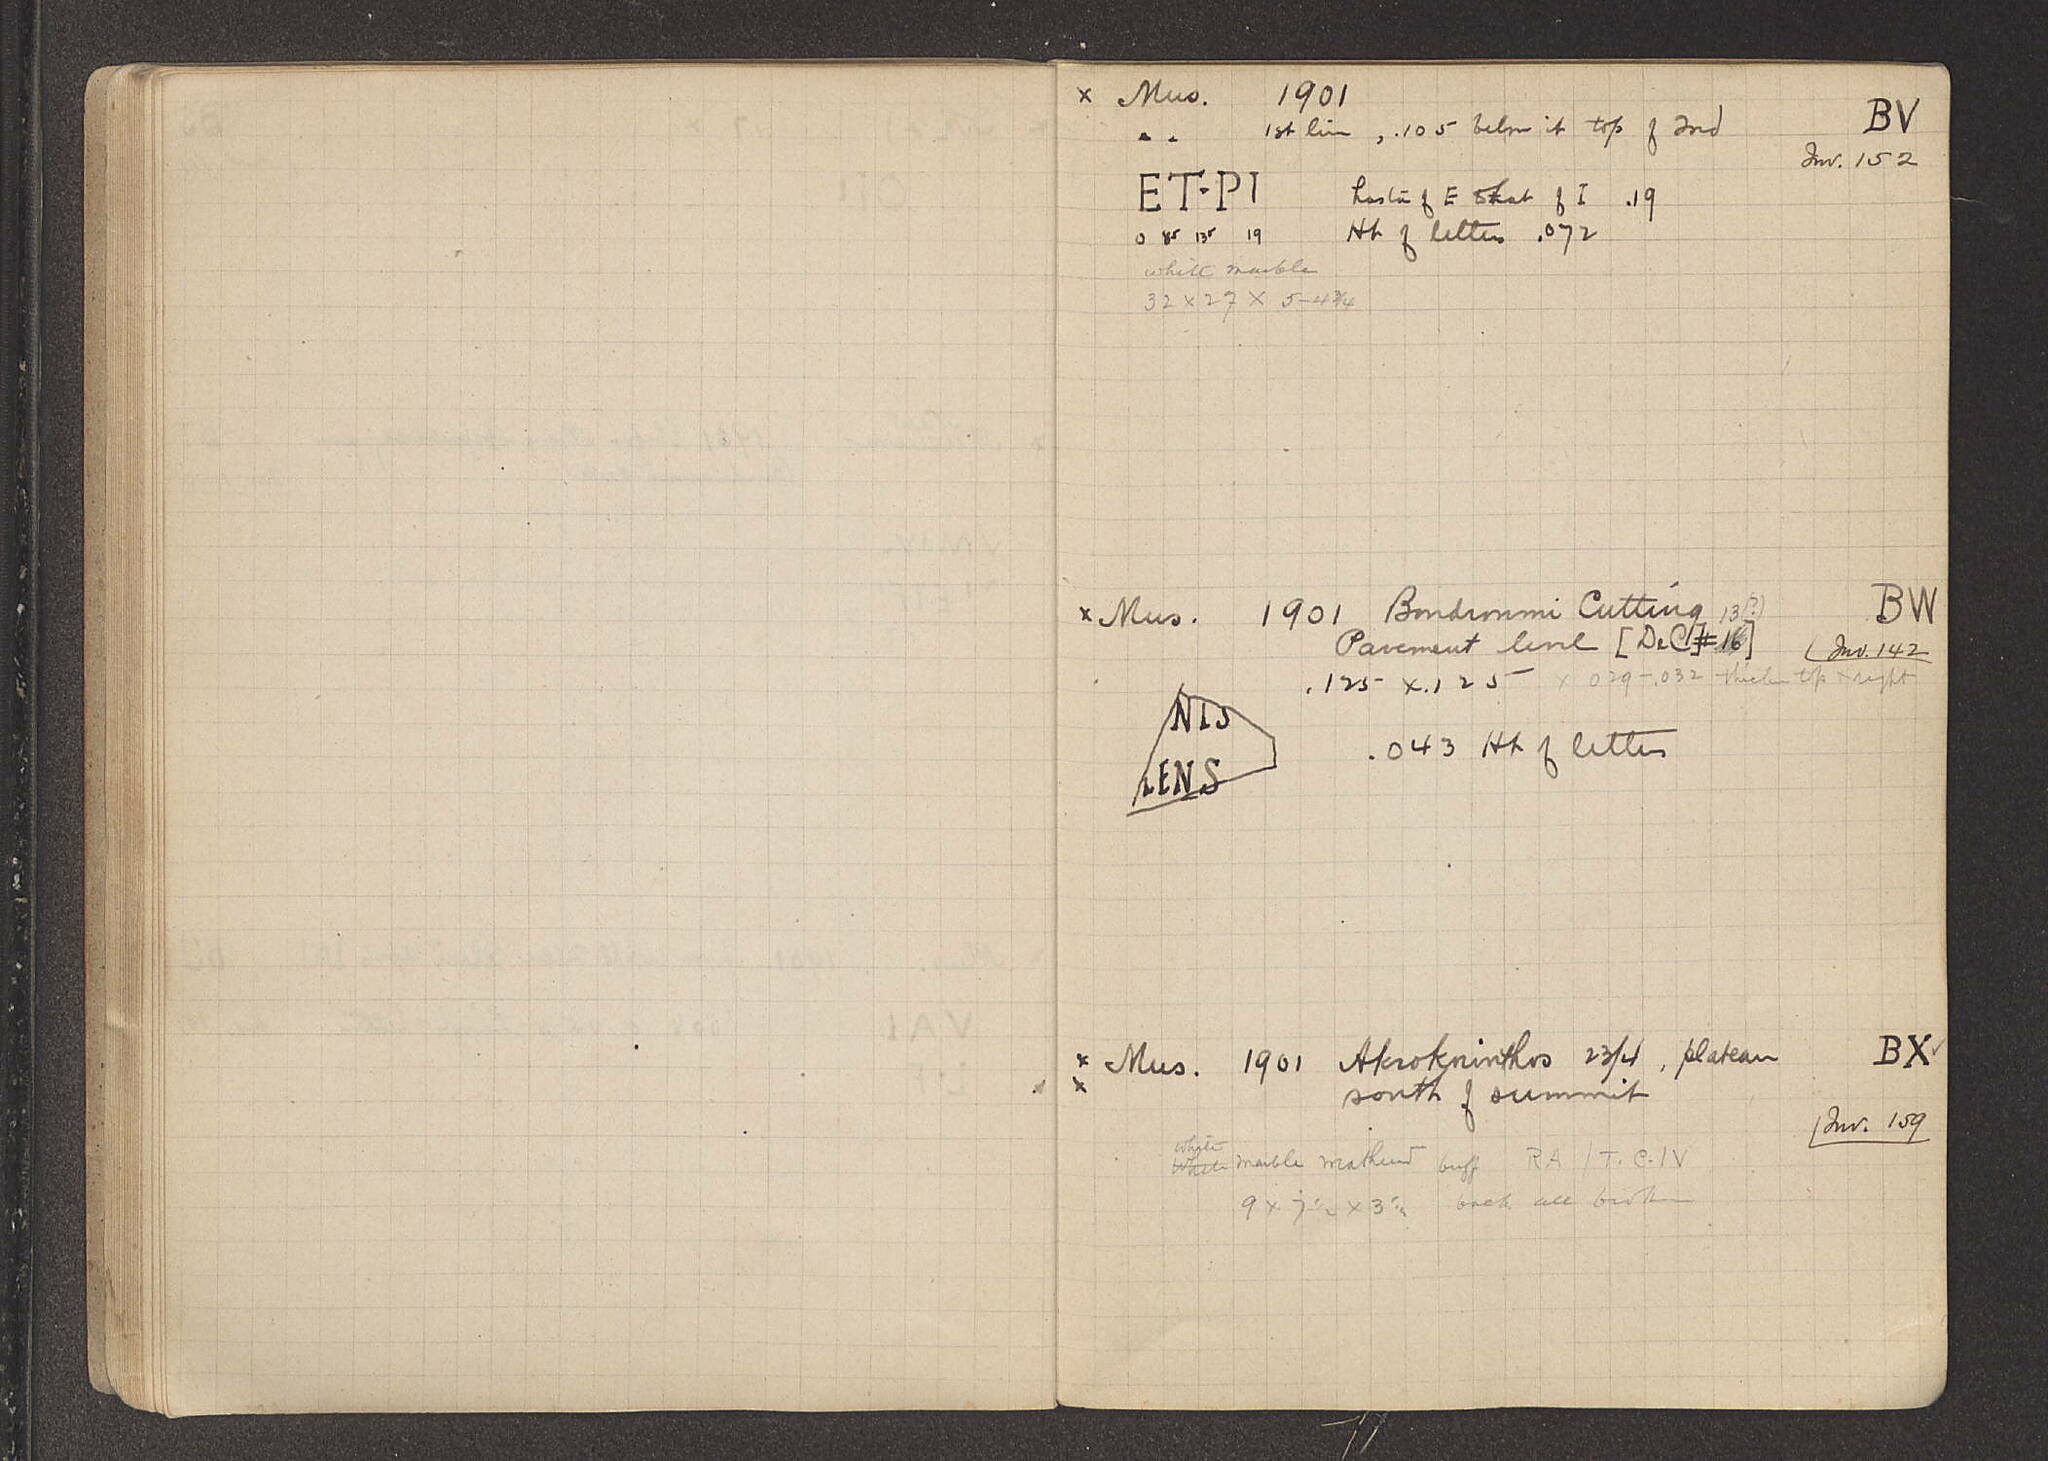 x Mus. 1901 BV
" " 1st line, .105 below it top of 2nd
Inv. 152
ET·PI hasta of E that of I .19
0 85 135 19 Ht of letters .072
white marble
32 x 27 x 5-4 3/4
x Mus. 1901 Boudroumi Cutting 13(?) BW
Pavement level [DeC]#16] Inv. 142
.125 x .125 x 029-.032 thicker top + right
NIS
.043 Ht of letters
LENS
x Mus. 1901 Akrokorinthos 23/4, plateau BX
x south of summit
Inv. 159
white
white marble weathered buff RA / T.C. IV
9 x 7 1/2 x 3 1/2 back all broken